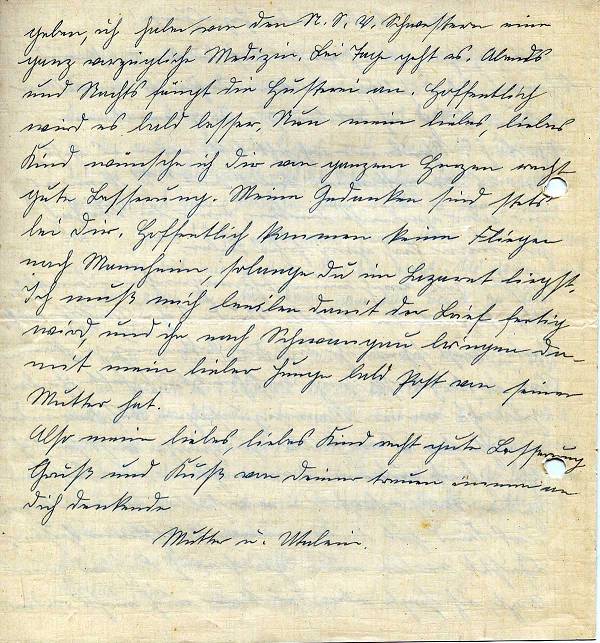 geben, ich habe von den N. S. V. Schwestern eine
ganz vorzügliche Medizin. Bei Tage geht es. Abends
und Nachts fängt die Husterei an. Hoffentlich
wird es bald besser. Nun mein liebes, liebes
Kind wünsche ich Dir von ganzem Herzen recht
gute Besserung. Meine Gedanken sind stets
bei Dir. Hoffentlich kommen keine Flieger
nach Mannheim, solange du im Lazaret liegst.
Ich muß mich beeilen damit der Brief fertig
wird, und ihn nach Schwangau bringen da-
mit mein lieber Junge bald Post von seiner
Mutter hat.
Also mein liebes, liebes Kind recht gute Besserung
Gruß und Kuß von Deiner treuen immer an
dich denkende
Mutter u.